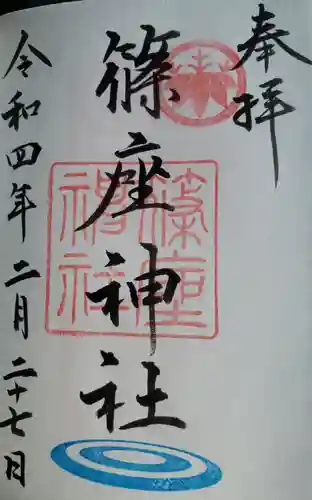 奉拝
篠座神社
令和四年二月二十七日
篠座
神社